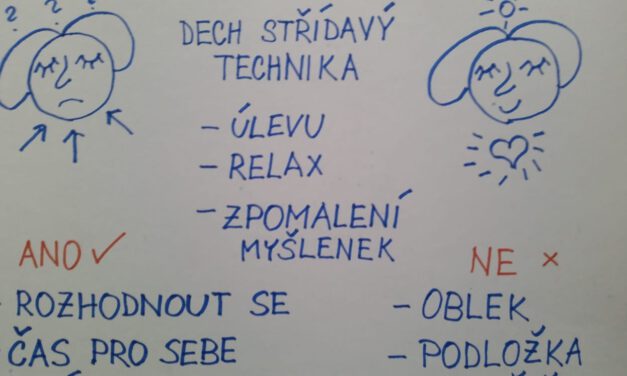 ? ? ?
DECH STŘÍDAVÝ
TECHNIKA
- ÚLEVU
- RELAX
- ZPOMALENÍ
MYŠLENEK
ANO ✓
- ROZHODNOUT SE
- ČAS PRO SEBE
NE ×
- OBLEK
- PODLOŽKA